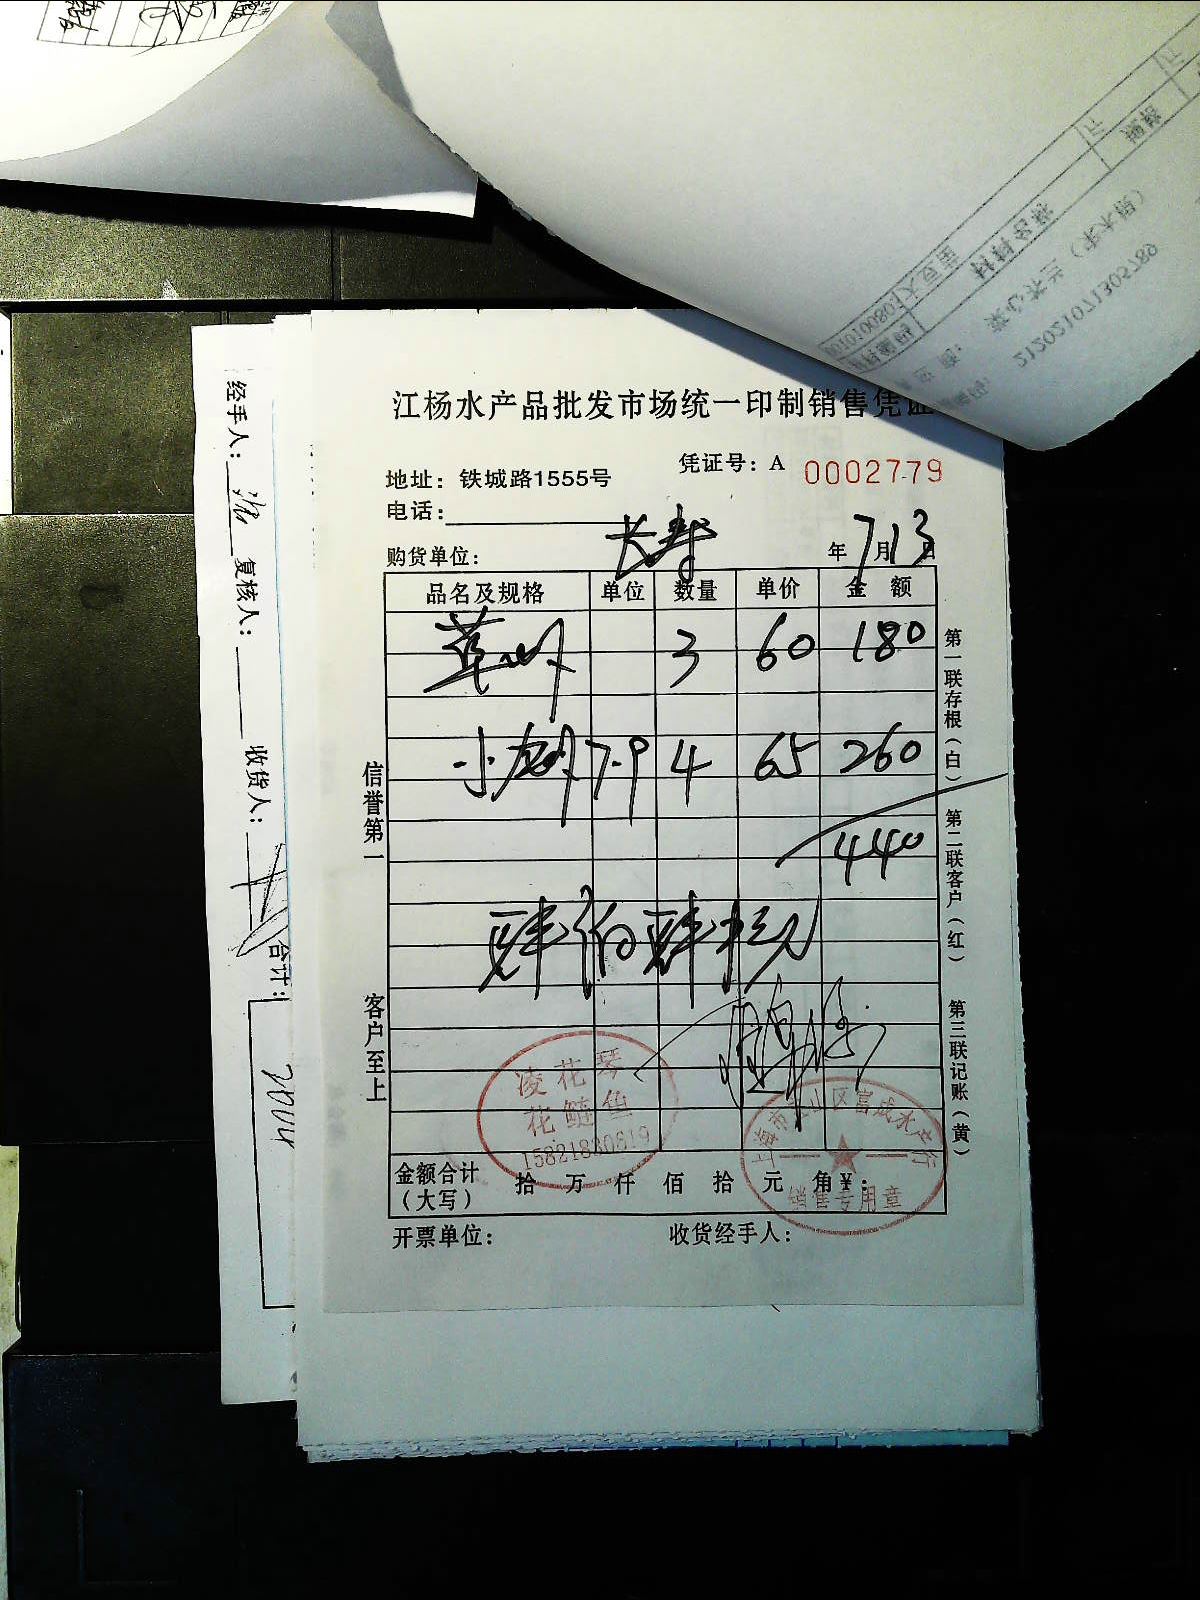 江杨水产品批发市场统一印制销售凭证
凭证号：A 0002779
地址：铁城路1555号
电话：
购货单位：长寿 年7月13日
品名及规格 单位 数量 单价 金 额
草虾 3 60 180
小龙虾 7.9 4 65 260
440
肆佰肆拾元
信誉第一
客户至上
第一联存根（白）
第二联客户（红）
第三联记账（黄）
凌花琴
花鲢鱼
15821830619
上海市宝山区富成水产行
销售专用章
金额合计（大写） 拾 万 仟 佰 拾 元 角 ¥：
开票单位：
收货经手人：
经手人：
复核人：
收货人：
合计：
212021071305789